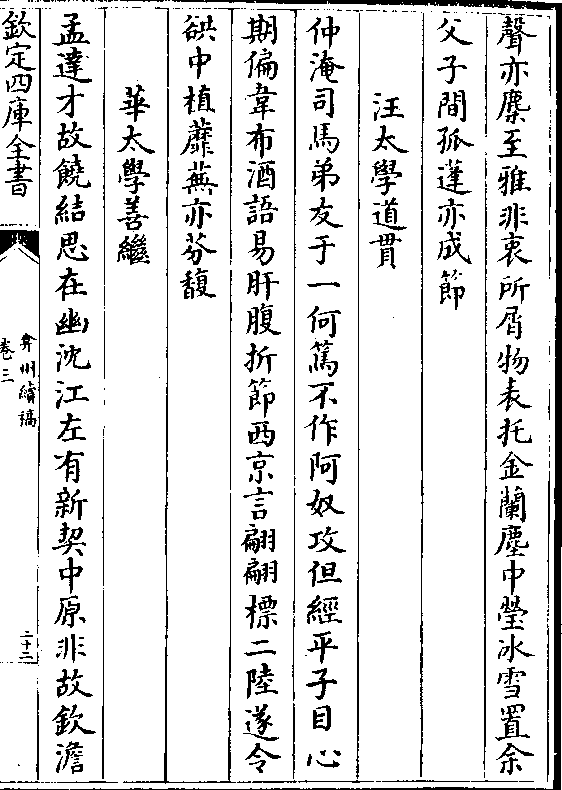 聲亦麋至雅非衷所屑物表托金蘭塵中瑩冰雪置余
父子間孤蓬亦成節
汪太學道貫
仲淹司馬弟友于一何篤不作阿奴攻但經平子目心
期偏韋布酒語易肝腹折節西京言翩翩標二陸遂令
谼中植蘼蕪亦芬馥
華太學善繼
孟達才故饒結思在幽沈江左有新契中原非故欽澹
欽定四庫全書
弇州續稿
卷三
二十二